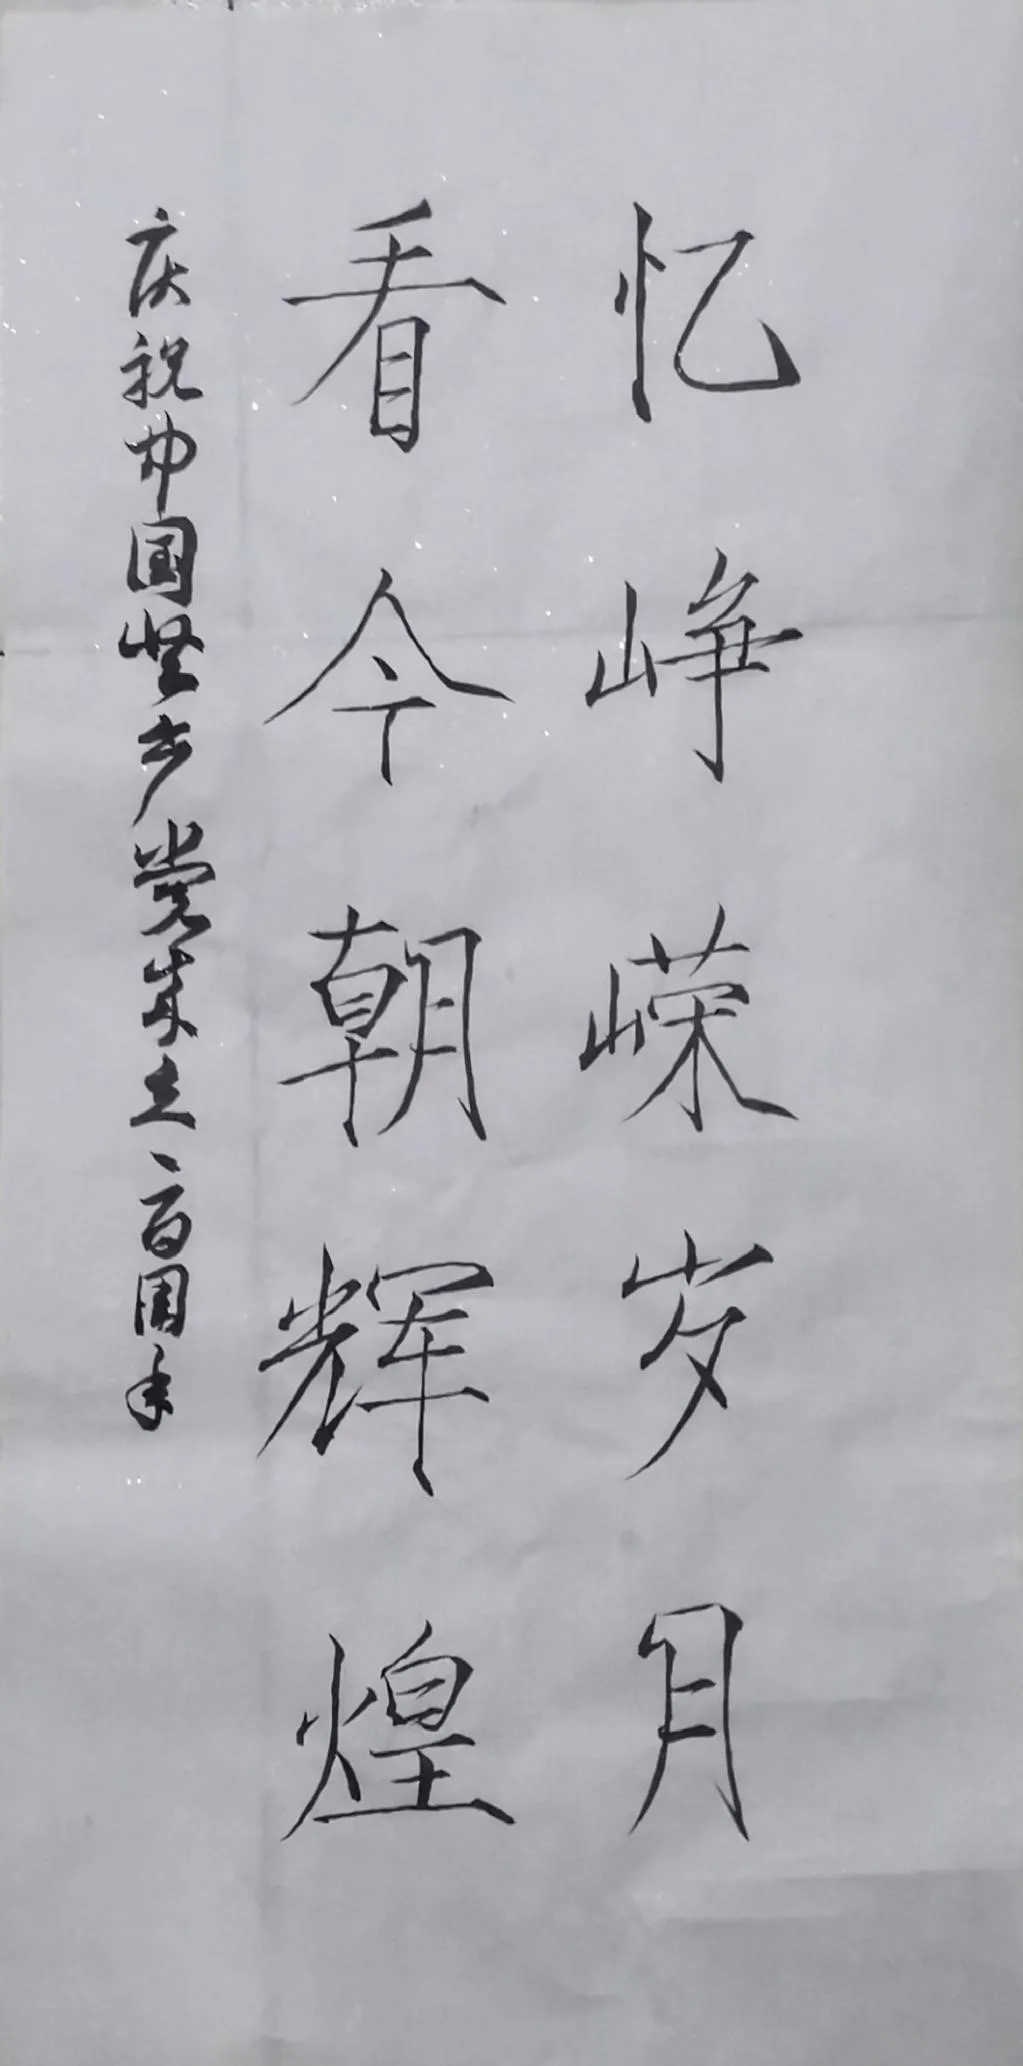 忆峥嵘岁月
看今朝辉煌
庆祝中国共产党成立一百周年